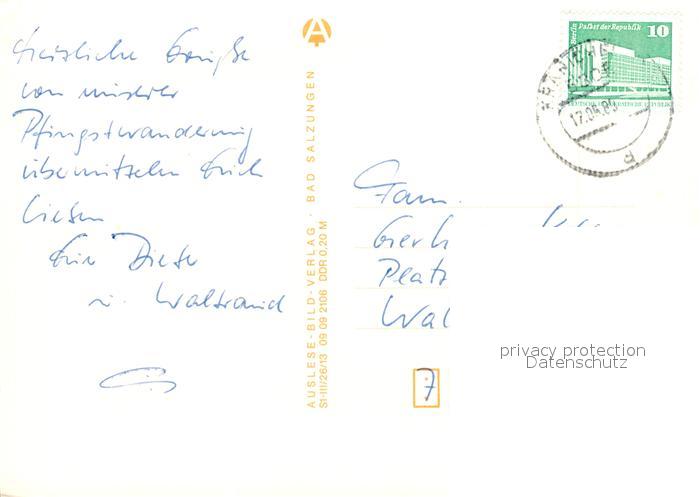 Herzliche Grüße
von unserer
Pfingstwanderung
übermitteln Euch
lieben
Eure Dieter
u. Waltraud
AUSLESE-BILD-VERLAG · BAD SALZUNGEN
S1-III/26/13 09 09 2106 DDR 0,20 M
Berlin Palast der Republik 10
DEUTSCHE DEMOKRATISCHE REPUBLIK
Fam.
Gerh
Platz
Wal
7
privacy protection
Datenschutz